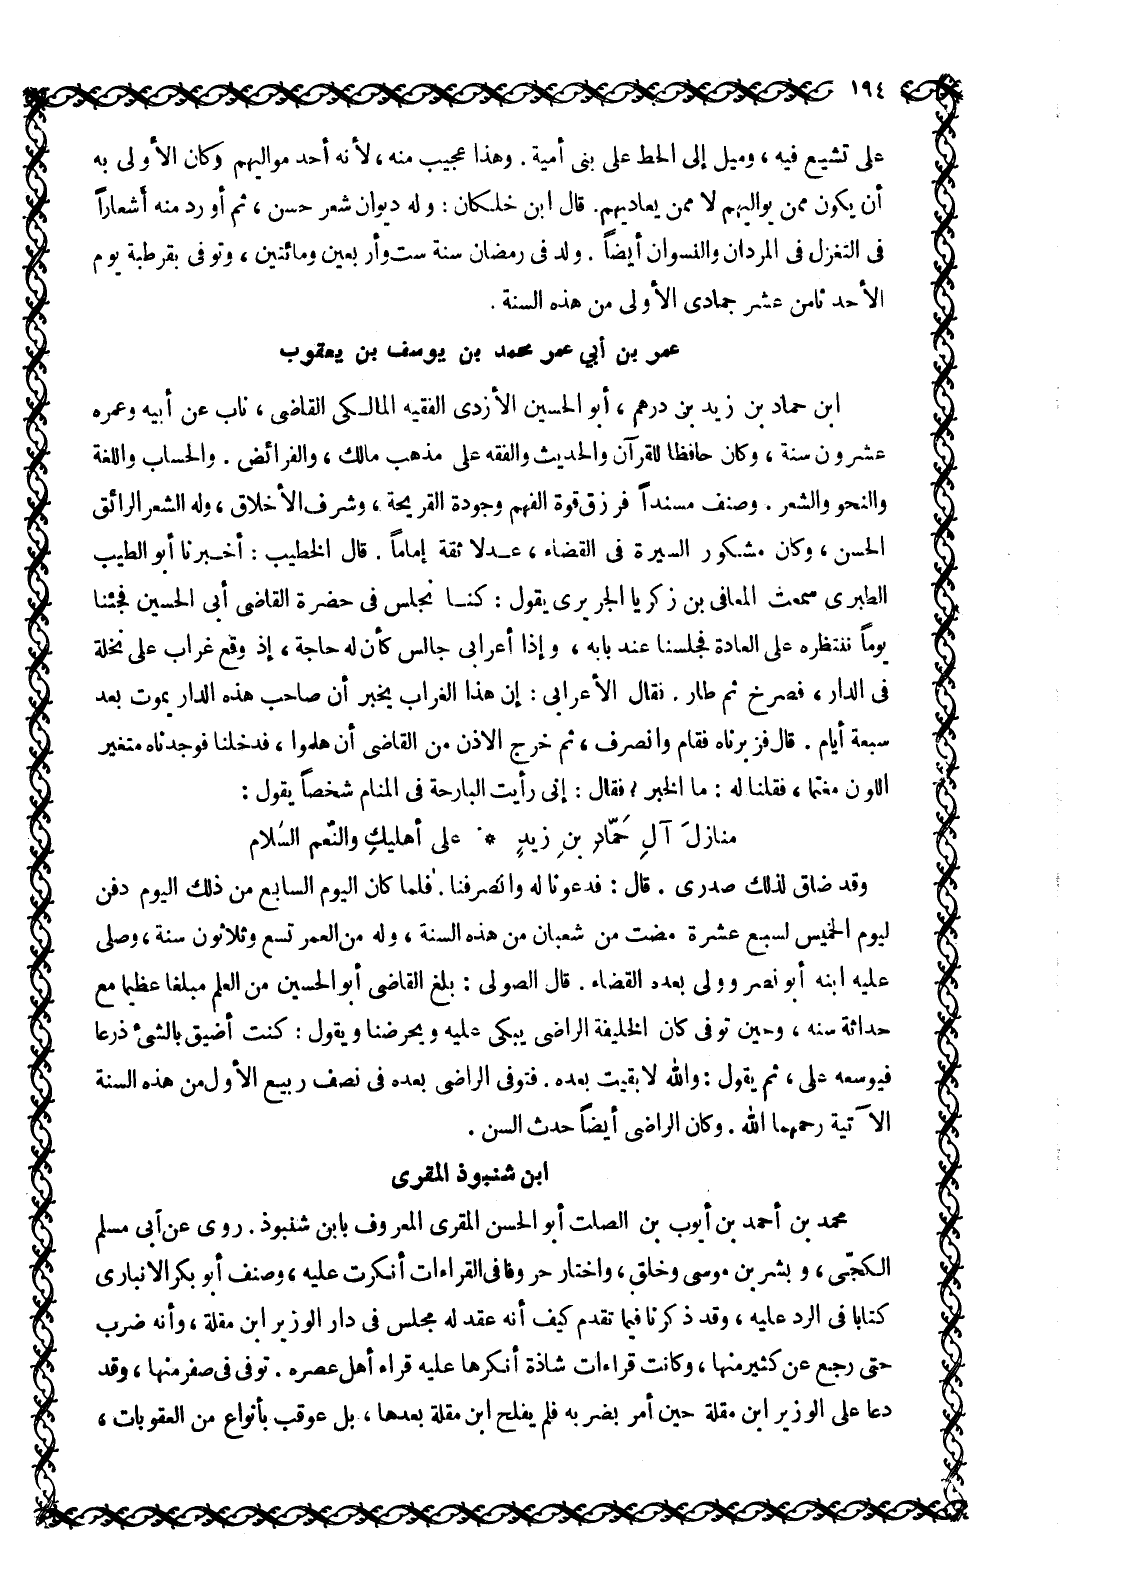 ١٩٤
على تشيع فيه ، وميل إلى الحط على بنى أمية . وهذا عجيب منه ، لأنه أحد مواليهم وكان الأولى به
أن يكون ممن يواليهم لا ممن يعاديهم . قال ابن خلكان : وله ديوان شعر حسن ، ثم أورد منه أشعاراً
فى التغزل فى المردان والنسوان أيضاً . ولد فى رمضان سنة ست وأربعين ومائتين ، وتوفى بقرطبة يوم
الأحد ثامن عشر جمادى الأولى من هذه السنة .
عمر بن أبي عمر محمد بن يوسف بن يعقوب
ابن حماد بن زيد بن درهم ، أبو الحسين الأزدى الفقيه المالكى القاضى ، ناب عن أبيه وعمره
عشرون سنة ، وكان حافظا للقرآن والحديث والفقه على مذهب مالك ، والفرائض . والحساب واللغة
والنحو والشعر . وصنف مسنداً فرزق قوة الفهم وجودة القريحة ، وشرف الأخلاق ، وله الشعر الرائق
الحسن ، وكان مشكور السيرة فى القضاء ، عدلا ثقة إماماً . قال الخطيب : أخبرنا أبو الطيب
الطبرى سمعت المعافى بن زكريا الجريرى يقول : كنا نجلس فى حضرة القاضى أبى الحسين فجئنا
يوماً ننتظره على العادة فجلسنا عند بابه ، وإذا أعرابى جالس كأن له حاجة ، إذ وقع غراب على نخلة
فى الدار ، فصرخ ثم طار . نقال الأعرابى : إن هذا الغراب يخبر أن صاحب هذه الدار يموت بعد
سبعة أيام . قال فزبرناه فقام وانصرف ، ثم خرج الاذن من القاضى أن هلموا ، فدخلنا فوجدناه متغير
اللون مغتما ، فقلنا له : ما الخبر ؟ فقال : إنى رأيت البارحة فى المنام شخصاً يقول :
منازلَ آلِ حَمّادِ بنِ زيدٍ * على أهليكِ والنّعم السّلام
وقد ضاق لذلك صدرى . قال : فدعونا له وانصرفنا . فلما كان اليوم السابع من ذلك اليوم دفن
ليوم الخميس لسبع عشرة مضت من شعبان من هذه السنة ، وله من العمر تسع وثلاثون سنة ، وصلى
عليه ابنه أبو نصر وولى بعده القضاء . قال الصولى : بلغ القاضى أبو الحسين من العلم مبلغا عظيما مع
حداثة سنه ، وحين توفى كان الخليفة الراضى يبكى عليه ويحرضنا ويقول : كنت أضيق بالشئ ذرعا
فيوسعه على ، ثم يقول : والله لا بقيت بعده . فتوفى الراضى بعده فى نصف ربيع الأول من هذه السنة
الآتية رحمهما الله . وكان الراضى أيضاً حدث السن .
ابن شنبوذ المقرى
محمد بن أحمد بن أيوب بن الصلت أبو الحسن المقرى المعروف بابن شنبوذ . روى عن أبى مسلم
الكجّى ، وبشر بن موسى وخلق ، واختار حروفا فى القراءات أنكرت عليه ، وصنف أبو بكر الانبارى
كتابا فى الرد عليه ، وقد ذكرنا فيما تقدم كيف أنه عقد له مجلس فى دار الوزير ابن مقلة ، وأنه ضرب
حتى رجع عن كثير منها ، وكانت قراءات شاذة أنكرها عليه قراء أهل عصره . توفى فى صفر منها ، وقد
دعا على الوزير ابن مقلة حين أمر بضربه فلم يفلح ابن مقلة بعدها ، بل عوقب بأنواع من العقوبات ،